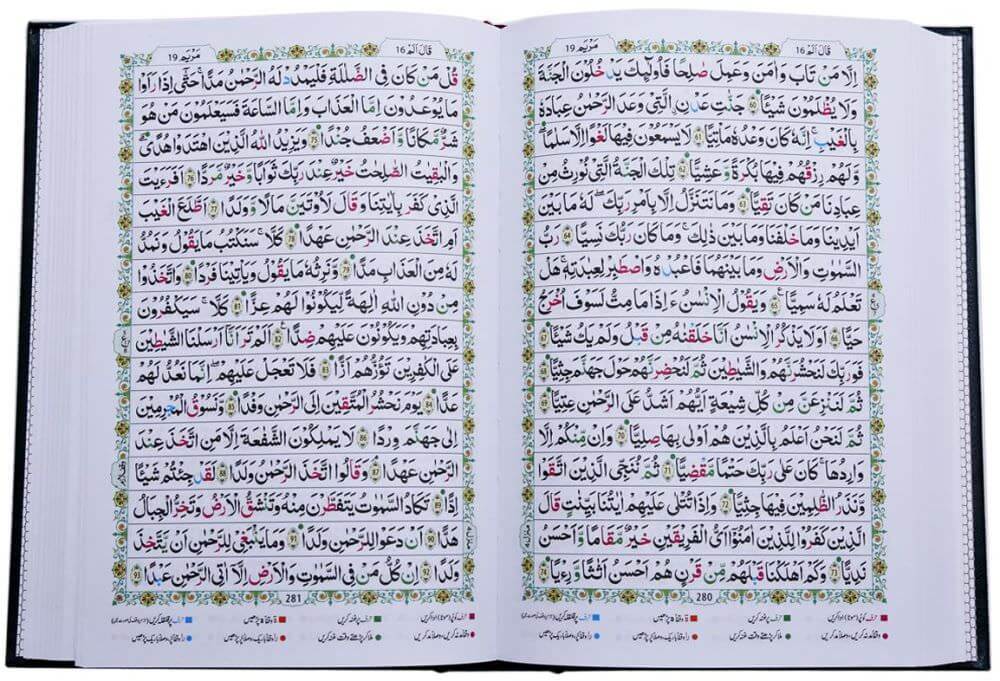 قَالَ اَلَمْ 16
مَرْيَم 19
اِلَّا مَنْ تَابَ وَاٰمَنَ وَعَمِلَ صَالِحًا فَاُولٰٓئِكَ يَدْخُلُوْنَ الْجَنَّةَ
وَلَا يُظْلَمُوْنَ شَيْـًٔا ۙ 60 جَنّٰتِ عَدْنِ ِۨالَّتِيْ وَعَدَ الرَّحْمٰنُ عِبَادَهٗ
بِالْغَيْبِ ؕ اِنَّهٗ كَانَ وَعْدُهٗ مَاْتِيًّا 61 لَا يَسْمَعُوْنَ فِيْهَا لَغْوًا اِلَّا سَلٰمًا ؕ
وَلَهُمْ رِزْقُهُمْ فِيْهَا بُكْرَةً وَّعَشِيًّا 62 تِلْكَ الْجَنَّةُ الَّتِيْ نُوْرِثُ مِنْ
عِبَادِنَا مَنْ كَانَ تَقِيًّا 63 وَمَا نَتَنَزَّلُ اِلَّا بِاَمْرِ رَبِّكَ ۚ لَهٗ مَا بَيْنَ
اَيْدِيْنَا وَمَا خَلْفَنَا وَمَا بَيْنَ ذٰلِكَ ۚ وَمَا كَانَ رَبُّكَ نَسِيًّا ۚ 64 رَبُّ
السَّمٰوٰتِ وَالْاَرْضِ وَمَا بَيْنَهُمَا فَاعْبُدْهُ وَاصْطَبِرْ لِعِبَادَتِهٖ ؕ هَلْ
تَعْلَمُ لَهٗ سَمِيًّا 65 وَيَقُوْلُ الْاِنْسَانُ ءَ اِذَا مَا مِتُّ لَسَوْفَ اُخْرَجُ
حَيًّا 66 اَوَلَا يَذْكُرُ الْاِنْسَانُ اَنَّا خَلَقْنٰهُ مِنْ قَبْلُ وَلَمْ يَكُ شَيْـًٔا 67
فَوَرَبِّكَ لَنَحْشُرَنَّهُمْ وَالشَّيٰطِيْنَ ثُمَّ لَنُحْضِرَنَّهُمْ حَوْلَ جَهَنَّمَ جِثِيًّا ۚ 68
ثُمَّ لَنَنْزِعَنَّ مِنْ كُلِّ شِيْعَةٍ اَيُّهُمْ اَشَدُّ عَلَى الرَّحْمٰنِ عِتِيًّا ۚ 69
ثُمَّ لَنَحْنُ اَعْلَمُ بِالَّذِيْنَ هُمْ اَوْلٰى بِهَا صِلِيًّا 70 وَاِنْ مِّنْكُمْ اِلَّا
وَارِدُهَا ۚ كَانَ عَلٰى رَبِّكَ حَتْمًا مَّقْضِيًّا ۚ 71 ثُمَّ نُنَجِّي الَّذِيْنَ اتَّقَوْا
وَّنَذَرُ الظّٰلِمِيْنَ فِيْهَا جِثِيًّا 72 وَاِذَا تُتْلٰى عَلَيْهِمْ اٰيٰتُنَا بَيِّنٰتٍ قَالَ
الَّذِيْنَ كَفَرُوْا لِلَّذِيْنَ اٰمَنُوْٓا ۙ اَيُّ الْفَرِيْقَيْنِ خَيْرٌ مَّقَامًا وَّاَحْسَنُ
نَدِيًّا 73 وَكَمْ اَهْلَكْنَا قَبْلَهُمْ مِّنْ قَرْنٍ هُمْ اَحْسَنُ اَثَاثًا وَّرِءْيًا 74
280
قَالَ اَلَمْ 16
مَرْيَم 19
قُلْ مَنْ كَانَ فِي الضَّلٰلَةِ فَلْيَمْدُدْ لَهُ الرَّحْمٰنُ مَدًّا ۚ حَتّٰٓى اِذَا رَاَوْا
مَا يُوْعَدُوْنَ اِمَّا الْعَذَابَ وَاِمَّا السَّاعَةَ ؕ فَسَيَعْلَمُوْنَ مَنْ هُوَ
شَرٌّ مَّكَانًا وَّاَضْعَفُ جُنْدًا 75 وَيَزِيْدُ اللّٰهُ الَّذِيْنَ اهْتَدَوْا هُدًى ؕ
وَالْبٰقِيٰتُ الصّٰلِحٰتُ خَيْرٌ عِنْدَ رَبِّكَ ثَوَابًا وَّخَيْرٌ مَّرَدًّا 76 اَفَرَءَيْتَ
الَّذِيْ كَفَرَ بِاٰيٰتِنَا وَقَالَ لَاُوْتَيَنَّ مَالًا وَّوَلَدًا ؕ 77 اَطَّلَعَ الْغَيْبَ
اَمِ اتَّخَذَ عِنْدَ الرَّحْمٰنِ عَهْدًا ۙ 78 كَلَّا ؕ سَنَكْتُبُ مَا يَقُوْلُ وَنَمُدُّ
لَهٗ مِنَ الْعَذَابِ مَدًّا ۙ 79 وَّنَرِثُهٗ مَا يَقُوْلُ وَيَاْتِيْنَا فَرْدًا 80 وَاتَّخَذُوْا
مِنْ دُوْنِ اللّٰهِ اٰلِهَةً لِّيَكُوْنُوْا لَهُمْ عِزًّا ۙ 81 كَلَّا ؕ سَيَكْفُرُوْنَ
بِعِبَادَتِهِمْ وَيَكُوْنُوْنَ عَلَيْهِمْ ضِدًّا 82 اَلَمْ تَرَ اَنَّآ اَرْسَلْنَا الشَّيٰطِيْنَ
عَلَى الْكٰفِرِيْنَ تَؤُزُّهُمْ اَزًّا ۙ 83 فَلَا تَعْجَلْ عَلَيْهِمْ ؕ اِنَّمَا نَعُدُّ لَهُمْ
عَدًّا ۚ 84 يَوْمَ نَحْشُرُ الْمُتَّقِيْنَ اِلَى الرَّحْمٰنِ وَفْدًا ۙ 85 وَّنَسُوْقُ الْمُجْرِمِيْنَ
اِلٰى جَهَنَّمَ وِرْدًا ۘ 86 لَا يَمْلِكُوْنَ الشَّفَاعَةَ اِلَّا مَنِ اتَّخَذَ عِنْدَ
الرَّحْمٰنِ عَهْدًا ۘ 87 وَقَالُوا اتَّخَذَ الرَّحْمٰنُ وَلَدًا ؕ 88 لَقَدْ جِئْتُمْ شَيْـًٔا
اِدًّا ۙ 89 تَكَادُ السَّمٰوٰتُ يَتَفَطَّرْنَ مِنْهُ وَتَنْشَقُّ الْاَرْضُ وَتَخِرُّ الْجِبَالُ
هَدًّا ۙ 90 اَنْ دَعَوْا لِلرَّحْمٰنِ وَلَدًا ۚ 91 وَمَا يَنْۢبَغِيْ لِلرَّحْمٰنِ اَنْ يَّتَّخِذَ
وَلَدًا ؕ 92 اِنْ كُلُّ مَنْ فِي السَّمٰوٰتِ وَالْاَرْضِ اِلَّآ اٰتِي الرَّحْمٰنِ عَبْدًا ؕ 93
281